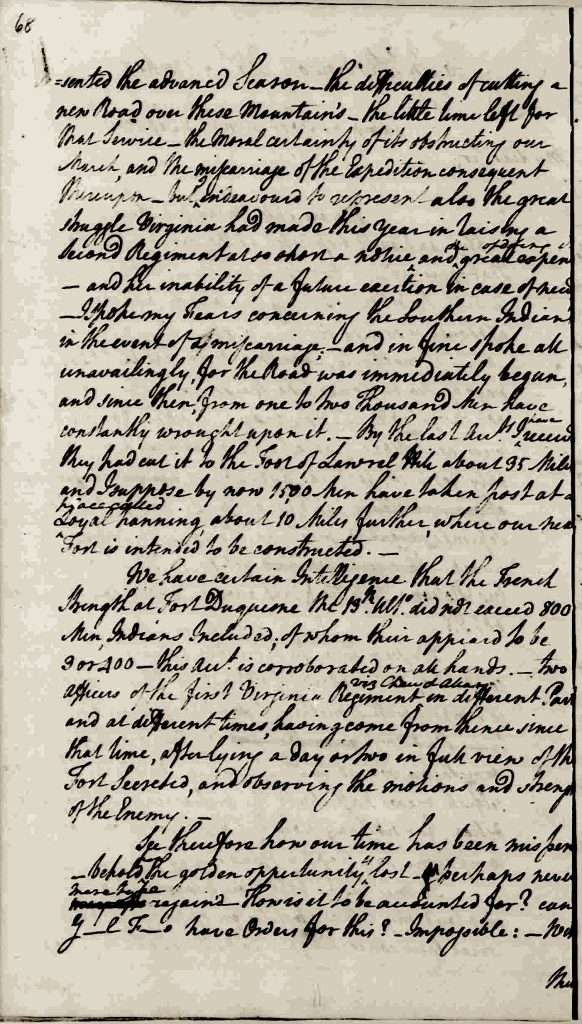 68
=sented the advanced Season – the difficulties of cutting a
new Road over these Mountain's – the little time left for
that Service – the Moral certainty of its obstructing our
March, and the miscarriage of the Expedition consequent
thereupon – but, endeavourd to represent also the great
struggle Virginia had made this year in raising a
second Regiment at so short a notice and great expen
– and her inability of a future exertion in case of need
– I spoke my Fears concerning the Southern Indian
in the event of a miscarriage, – and in fine spoke all
unavailingly, for the Road was immediately begun,
and since then, from one to two Thousand Men have
constantly wrought upon it. – By the last Acct.s I have receiv
they had cut it to the Foot of Lawrel Hill about 35 Miles
and I suppose by now 1500 Men have taken post at a
place called
Loyal hanning, about 10 Miles further, where our nex
Fort is intended to be constructed. –
We have certain Intelligence that the French
Strength at Fort Duquesne the 13th. Ulto. did not exceed 800
Men, Indians Included; of whom their appeard to be
3 or 400 – this Acct. is corroborated on all hands. – two
viz Chew & Allan
officers of the first Virginia Regiment in different Part
and at different times, having come from thence since
that time, after lying a day or two in full view of th
Fort Secreted, and observing the motions and streng
of the Enemy. –
See therefore how our time has been mispen
– behold the golden oppertunity, lost – perhaps never
more to be
regaind – How is it to be accounted for? can
G–l F–s have Orders for this? – Impossible: – Wi